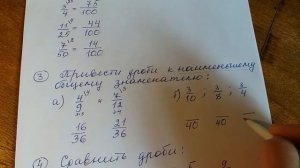 3/4 = 75/100
11/25 = 44/100
7/50 = 14/100
③ Привести дроби к наименьшему
общему знаменателю:
а) 4/9 и 7/12 б) 3/10; 3/8; 3/4
16/36 21/36 /40 /40
④ Сравнить дроби:
5 9